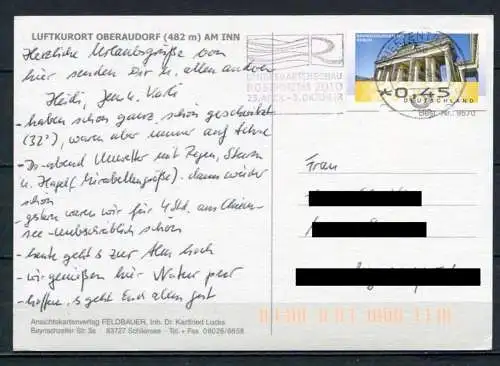 LUFTKURORT OBERAUDORF (482 m) AM INN
Herzliche Urlaubsgrüße von
hier senden Dir u. allen anderen
Heidi, Jens u.
- haben schon ganz schön geschwitzt
(32°), waren aber immer auf Achse
- Do-abend Unwetter mit Regen, Sturm
u. Hagel (Mirabellengröße). dann wieder
schön
- gestern waren wir für 4 Std. am Chiem-
see - unbeschreiblich schön
- heute geht's zur Alm hoch
- wir genießen hier Natur pur
- hoffen, s geht Euch allen gut
Ansichtskartenverlag FELDBAUER, Inh. Dr. Karlfried Lucks
Bayrischzeller Str. 3a 83727 Schliersee Tel. + Fax 08026/6658
BRANDENBURGER TOR
BERLIN
*0,45
DEUTSCHLAND
LANDESGARTENSCHAU
ROSENHEIM 2010
Best.-Nr. 9570
Frau